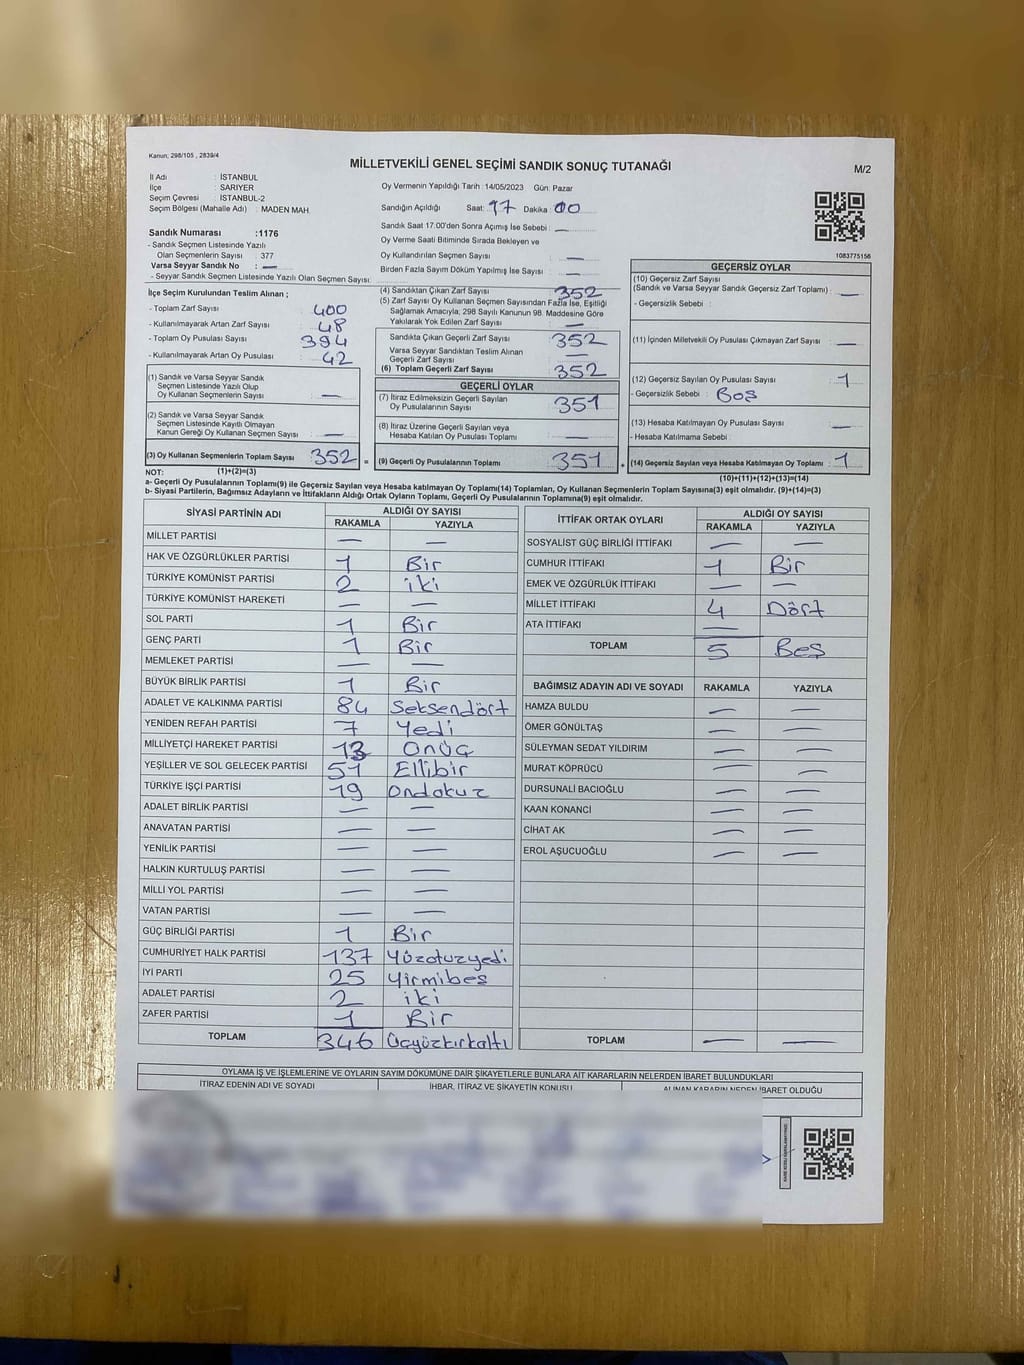 Kanun; 298/105 , 2839/4
MİLLETVEKİLİ GENEL SEÇİMİ SANDIK SONUÇ TUTANAĞI
M/2
İl Adı : İSTANBUL
İlçe : SARIYER
Seçim Çevresi : İSTANBUL-2
Seçim Bölgesi (Mahalle Adı) : MADEN MAH.
Oy Vermenin Yapıldığı Tarih : 14/05/2023 Gün: Pazar
Sandığın Açıldığı Saat: 17 Dakika: 00
Sandık Saat 17:00'den Sonra Açımış İse Sebebi : —
Oy Verme Saati Bitiminde Sırada Bekleyen ve
Oy Kullandırılan Seçmen Sayısı : —
Birden Fazla Sayım Döküm Yapılmış İse Sayısı : —
1083775156
Sandık Numarası :1176
- Sandık Seçmen Listesinde Yazılı
Olan Seçmenlerin Sayısı : 377
Varsa Seyyar Sandık No : —
- Seyyar Sandık Seçmen Listesinde Yazılı Olan Seçmen Sayısı:
İlçe Seçim Kurulundan Teslim Alınan ;
- Toplam Zarf Sayısı : 400
- Kullanılmayarak Artan Zarf Sayısı : 48
- Toplam Oy Pusulası Sayısı : 394
- Kullanılmayarak Artan Oy Pusulası : 42
(1) Sandık ve Varsa Seyyar Sandık
Seçmen Listesinde Yazılı Olup
Oy Kullanan Seçmenlerin Sayısı : —
(2) Sandık ve Varsa Seyyar Sandık
Seçmen Listesinde Kayıtlı Olmayan
Kanun Gereği Oy Kullanan Seçmen Sayısı : —
(3) Oy Kullanan Seçmenlerin Toplam Sayısı : 352 =
(1)+(2)=(3)
(4) Sandıktan Çıkan Zarf Sayısı : 352
(5) Zarf Sayısı Oy Kullanan Seçmen Sayısından Fazla İse, Eşitliği
Sağlamak Amacıyla; 298 Sayılı Kanunun 98. Maddesine Göre
Yakılarak Yok Edilen Zarf Sayısı : —
Sandıkta Çıkan Geçerli Zarf Sayısı : 352
Varsa Seyyar Sandıktan Teslim Alınan
Geçerli Zarf Sayısı : —
(6) Toplam Geçerli Zarf Sayısı : 352
GEÇERLİ OYLAR
(7) İtiraz Edilmeksizin Geçerli Sayılan
Oy Pusulalarının Sayısı : 351
(8) İtiraz Üzerine Geçerli Sayılan veya
Hesaba Katılan Oy Pusulası Toplamı : —
(9) Geçerli Oy Pusulalarının Toplamı : 351 +
GEÇERSİZ OYLAR
(10) Geçersiz Zarf Sayısı
(Sandık ve Varsa Seyyar Sandık Geçersiz Zarf Toplamı) : —
- Geçersizlik Sebebi :
(11) İçinden Milletvekili Oy Pusulası Çıkmayan Zarf Sayısı : —
(12) Geçersiz Sayılan Oy Pusulası Sayısı : 1
- Geçersizlik Sebebi : Boş
(13) Hesaba Katılmayan Oy Pusulası Sayısı : —
- Hesaba Katılmama Sebebi :
(14) Geçersiz Sayılan veya Hesaba Katılmayan Oy Toplamı : 1
(10)+(11)+(12)+(13)=(14)
NOT:
a- Geçerli Oy Pusulalarının Toplamı(9) ile Geçersiz Sayılan veya Hesaba Katılmayan Oy Toplamı(14) Toplamları, Oy Kullanan Seçmenlerin Toplam Sayısına(3) eşit olmalıdır. (9)+(14)=(3)
b- Siyasi Partilerin, Bağımsız Adayların ve İttifakların Aldığı Ortak Oyların Toplamı, Geçerli Oy Pusulalarının Toplamına(9) eşit olmalıdır.
SİYASİ PARTİNİN ADI ALDIĞI OY SAYISI
RAKAMLA YAZIYLA
MİLLET PARTİSİ — —
HAK VE ÖZGÜRLÜKLER PARTİSİ 1 Bir
TÜRKİYE KOMÜNİST PARTİSİ 2 iki
TÜRKİYE KOMÜNİST HAREKETİ — —
SOL PARTİ 1 Bir
GENÇ PARTİ 1 Bir
MEMLEKET PARTİSİ — —
BÜYÜK BİRLİK PARTİSİ 1 Bir
ADALET VE KALKINMA PARTİSİ 84 Seksendört
YENİDEN REFAH PARTİSİ 7 Yedi
MİLLİYETÇİ HAREKET PARTİSİ 13 Onüç
YEŞİLLER VE SOL GELECEK PARTİSİ 51 Ellibir
TÜRKİYE İŞÇİ PARTİSİ 19 Ondokuz
ADALET BİRLİK PARTİSİ — —
ANAVATAN PARTİSİ — —
YENİLİK PARTİSİ — —
HALKIN KURTULUŞ PARTİSİ — —
MİLLİ YOL PARTİSİ — —
VATAN PARTİSİ — —
GÜÇ BİRLİĞİ PARTİSİ 1 Bir
CUMHURİYET HALK PARTİSİ 137 Yüzotuzyedi
İYİ PARTİ 25 Yirmibeş
ADALET PARTİSİ 2 iki
ZAFER PARTİSİ 1 Bir
TOPLAM 346 Üçyüzkırkaltı
İTTİFAK ORTAK OYLARI ALDIĞI OY SAYISI
RAKAMLA YAZIYLA
SOSYALİST GÜÇ BİRLİĞİ İTTİFAKI — —
CUMHUR İTTİFAKI 1 Bir
EMEK VE ÖZGÜRLÜK İTTİFAKI — —
MİLLET İTTİFAKI 4 Dört
ATA İTTİFAKI —
TOPLAM 5 Beş
BAĞIMSIZ ADAYIN ADI VE SOYADI RAKAMLA YAZIYLA
HAMZA BULDU — —
ÖMER GÖNÜLTAŞ — —
SÜLEYMAN SEDAT YILDIRIM — —
MURAT KÖPRÜCÜ — —
DURSUNALİ BACIOĞLU — —
KAAN KONANCİ — —
CİHAT AK — —
EROL AŞUCUOĞLU — —
TOPLAM — —
OYLAMA İŞ VE İŞLEMLERİNE VE OYLARIN SAYIM DÖKÜMÜNE DAİR ŞİKAYETLERLE BUNLARA AİT KARARLARIN NELERDEN İBARET BULUNDUKLARI
İTİRAZ EDENİN ADI VE SOYADI İHBAR, İTİRAZ VE ŞİKAYETİN KONUSU ALINAN KARARIN NEDEN İBARET OLDUĞU